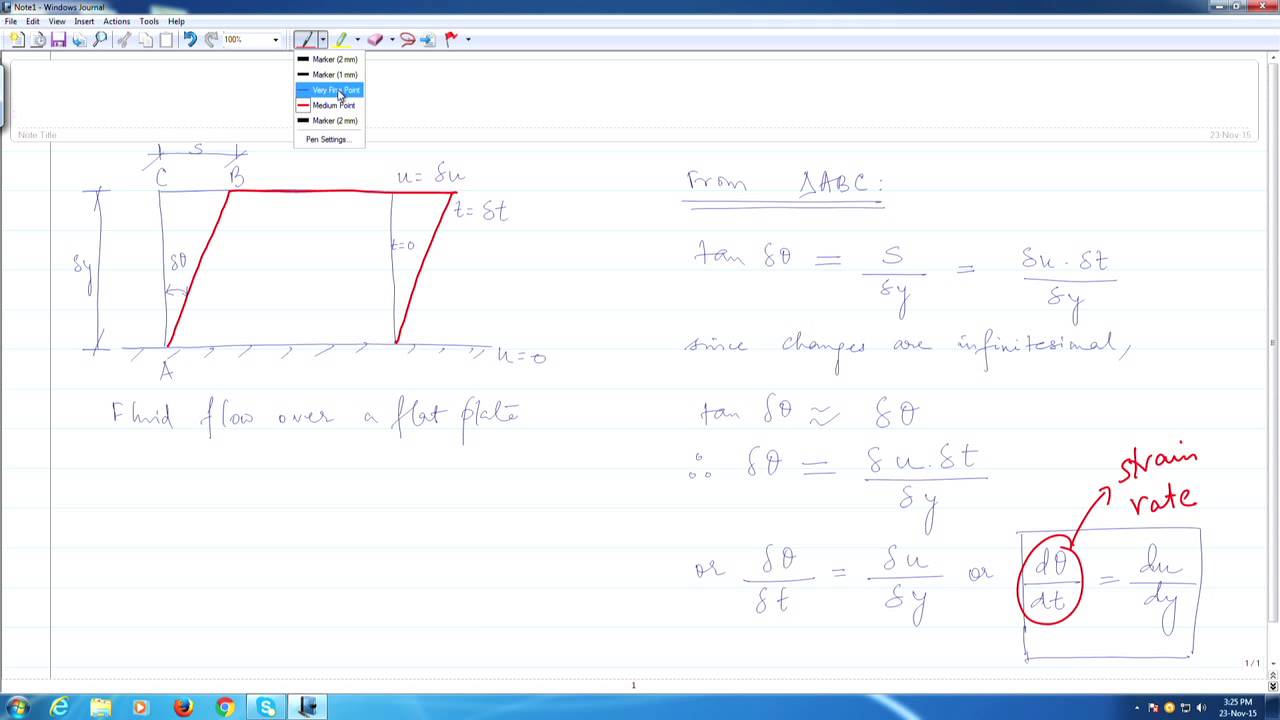 Note1 - Windows Journal
File Edit View Insert Actions Tools Help
100%
Marker (2 mm)
Marker (1 mm)
Very Fine Point
Medium Point
Marker (2 mm)
Pen Settings...
Note Title
23-Nov-15
s
C B u = δu
t = δt
δy δθ t=0
A u = 0
Fluid flow over a flat plate
From ΔABC:
tan δθ = s/δy = δu · δt/δy
since changes are infinitesimal,
tan δθ ≈ δθ
∴ δθ = δu · δt/δy
strain
rate
or δθ/δt = δu/δy or dθ/dt = du/dy
1/1
1
3:25 PM
23-Nov-15